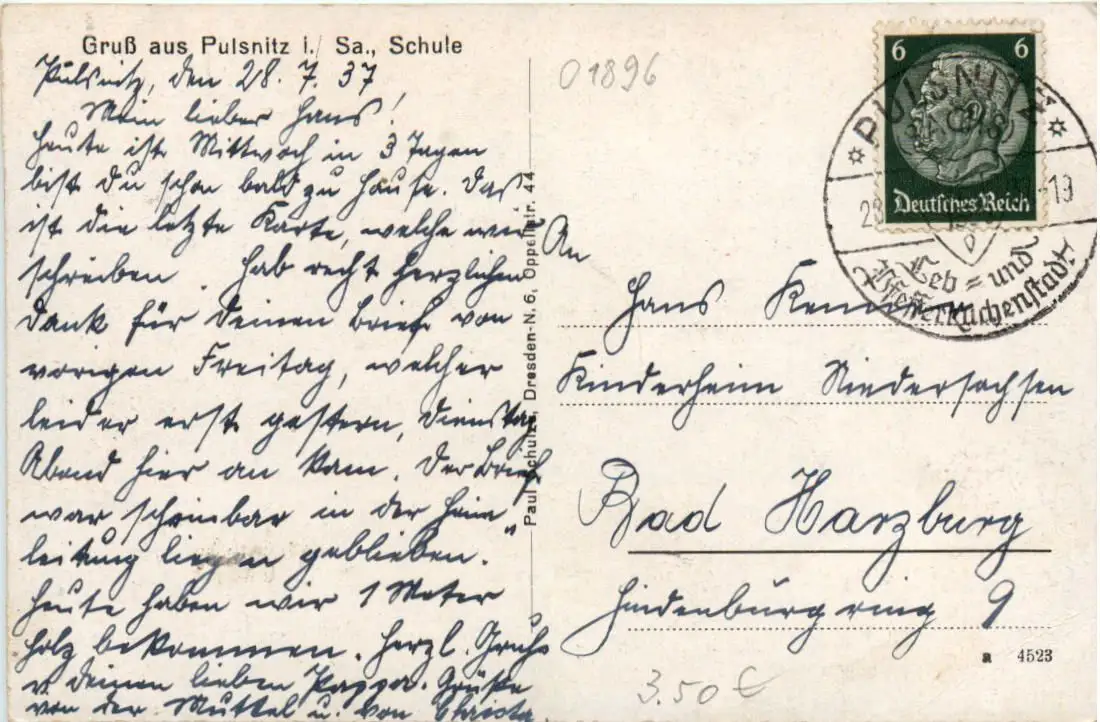 Gruß aus Pulsnitz i. Sa., Schule
Pulsnitz, den 28. 7. 37
Mein lieber Hans!
Heute ist Mittwoch in 3 Tagen
bist Du schon bald zu Hause. Das
ist die letzte Karte, welche wir
schreiben. Hab recht herzlichen
Dank für Deinen Brief von
vorigen Freitag, welcher
leider erst gestern, Dienstag
Abend hier an kam. Der Brief
war scheinbar in der Heim"
leitung liegen geblieben.
Heute haben wir 1 Meter
Holz bekommen. Herzl. Gruß
v. Deinen lieben Pappa. Grüße
von der Muttel u. von Christa.
Paul Schulze, Dresden-N. 6, Oppellstr. 44
01896
6 6
Deutsches Reich
PULSNITZ
(SACHS)
28
-19
b
Leb= und
Pfefferkuchenstadt
An
Hans
Kinderheim Niedersachsen
Bad Harzburg
Hindenburgring 9
a 4523
3.50 €